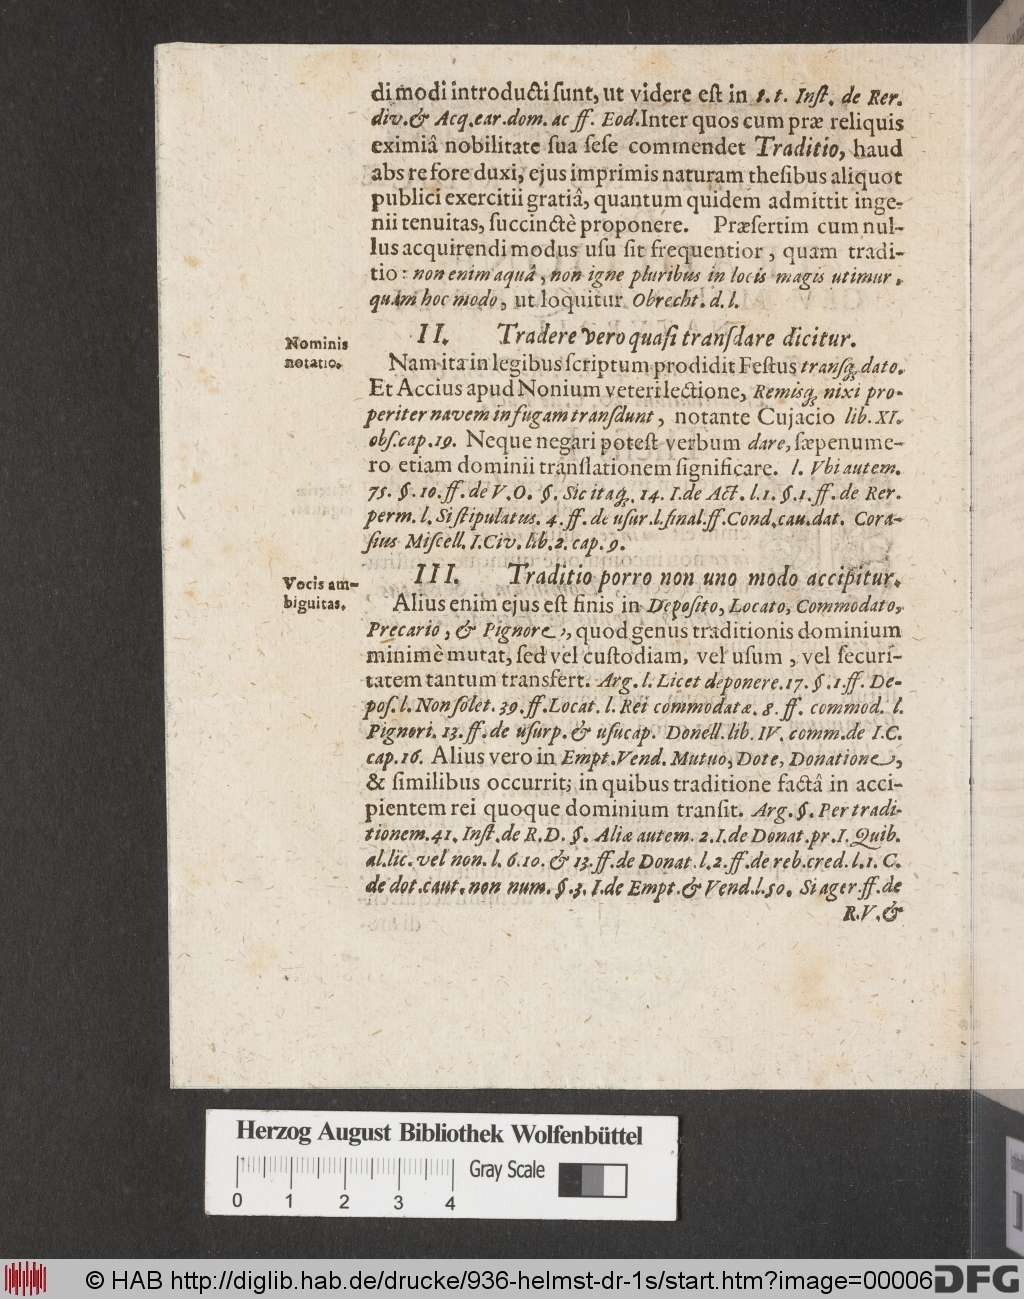 di modi introducti ſunt, ut videre eſt in t.t. Inſt. de Rer.
div. & Acq. ear. dom. ac ff. Eod. Inter quos cum præ reliquis
eximiâ nobilitate ſua ſeſe commendet Traditio, haud
abs re fore duxi, ejus imprimis naturam theſibus aliquot
publici exercitii gratiâ, quantum quidem admittit inge-
nii tenuitas, ſuccinctè proponere. Præſertim cum nul-
lus acquirendi modus uſu ſit frequentior, quam tradi-
tio: non enim aquâ, non igne pluribus in locis magis utimur,
quàm hoc modo, ut loquitur Obrecht. d. l.
II. Tradere vero quaſi transdare dicitur.
Nominis
notatio.
Nam ita in legibus ſcriptum prodidit Feſtus transq́; dato.
Et Accius apud Nonium veteri lectione, Remisq́; nixi pro-
periter navem in fugam transdunt, notante Cujacio lib. XI.
obſ. cap. 19. Neque negari poteſt verbum dare, ſæpenume-
ro etiam dominii translationem ſignificare. l. Vbi autem.
75. §. 10. ff. de V.O. §. Sic itaq́;. 14. I. de Act. l. 1. §. 1. ff. de Rer.
perm. l. Si ſtipulatus. 4. ff. de uſur. l. final. ff. Cond. cau. dat. Cora-
ſius Miſcell. I. Civ. lib. 2. cap. 9.
III. Traditio porro non uno modo accipitur.
Vocis am-
biguitas.
Alius enim ejus eſt finis in Depoſito, Locato, Commodato,
Precario, & Pignore, quod genus traditionis dominium
minimè mutat, ſed vel cuſtodiam, vel uſum, vel ſecuri-
tatem tantum transfert. Arg. l. Licet deponere. 17. §. 1. ff. De-
poſ. l. Non ſolet. 39. ff. Locat. l. Rei commodatæ. 8. ff. commod. l.
Pignori. 13. ff. de uſurp. & uſucap. Donell. lib. IV. comm. de I.C.
cap. 16. Alius vero in Empt. Vend. Mutuo, Dote, Donatione,
& ſimilibus occurrit; in quibus traditione factâ in acci-
pientem rei quoque dominium tranſit. Arg. §. Per tradi-
tionem. 41. Inſt. de R.D. §. Aliæ autem. 2. I. de Donat. pr. I. Quib.
al. lic. vel non. l. 6. 10. & 13. ff. de Donat. l. 2. ff. de reb. cred. l. 1. C.
de dot. caut. non num. §. 3. I. de Empt. & Vend. l. 50. Si ager. ff. de
R.V. &
Herzog August Bibliothek Wolfenbüttel
Gray Scale
0 1 2 3 4
© HAB http://diglib.hab.de/drucke/936-helmst-dr-1s/start.htm?image=00006
DFG